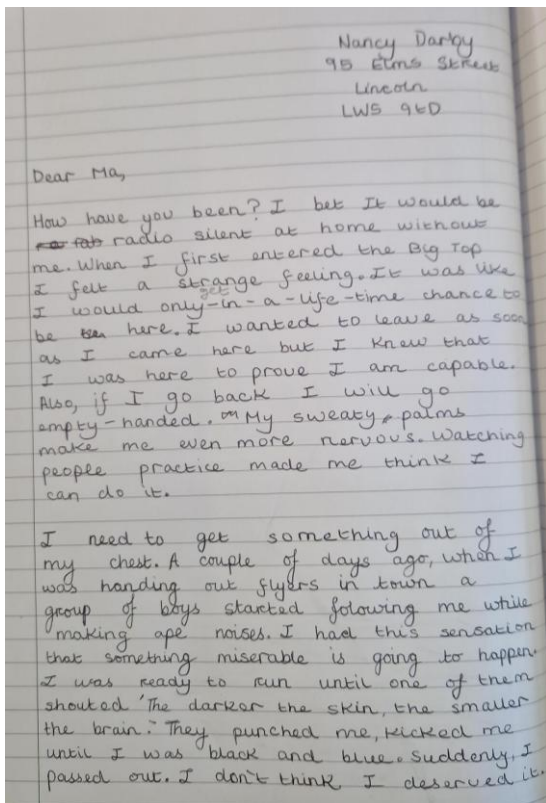 Nancy Darby
95 Elms Street
Lincoln
LW5 9tD
Dear Ma,
How have you been? I bet It would be
radio silent at home without
me. When I first entered the Big Top
I felt a strange feeling. It was like
I would get only-in-a-life-time chance to
be here. I wanted to leave as soon
as I came here but I knew that
I was here to prove I am capable.
Also, if I go back I will go
empty-handed. My sweaty palms
make me even more nervous. Watching
people practice made me think I
can do it.
I need to get something out of
my chest. A couple of days ago, when I
was handing out flyers in town a
group of boys started folowing me while
making ape noises. I had this sensation
that something miserable is going to happen.
I was ready to run until one of them
shouted 'The darker the skin, the smaller
the brain.' They punched me, kicked me
until I was black and blue. Suddenly, I
passed out. I don't think I deserved it.